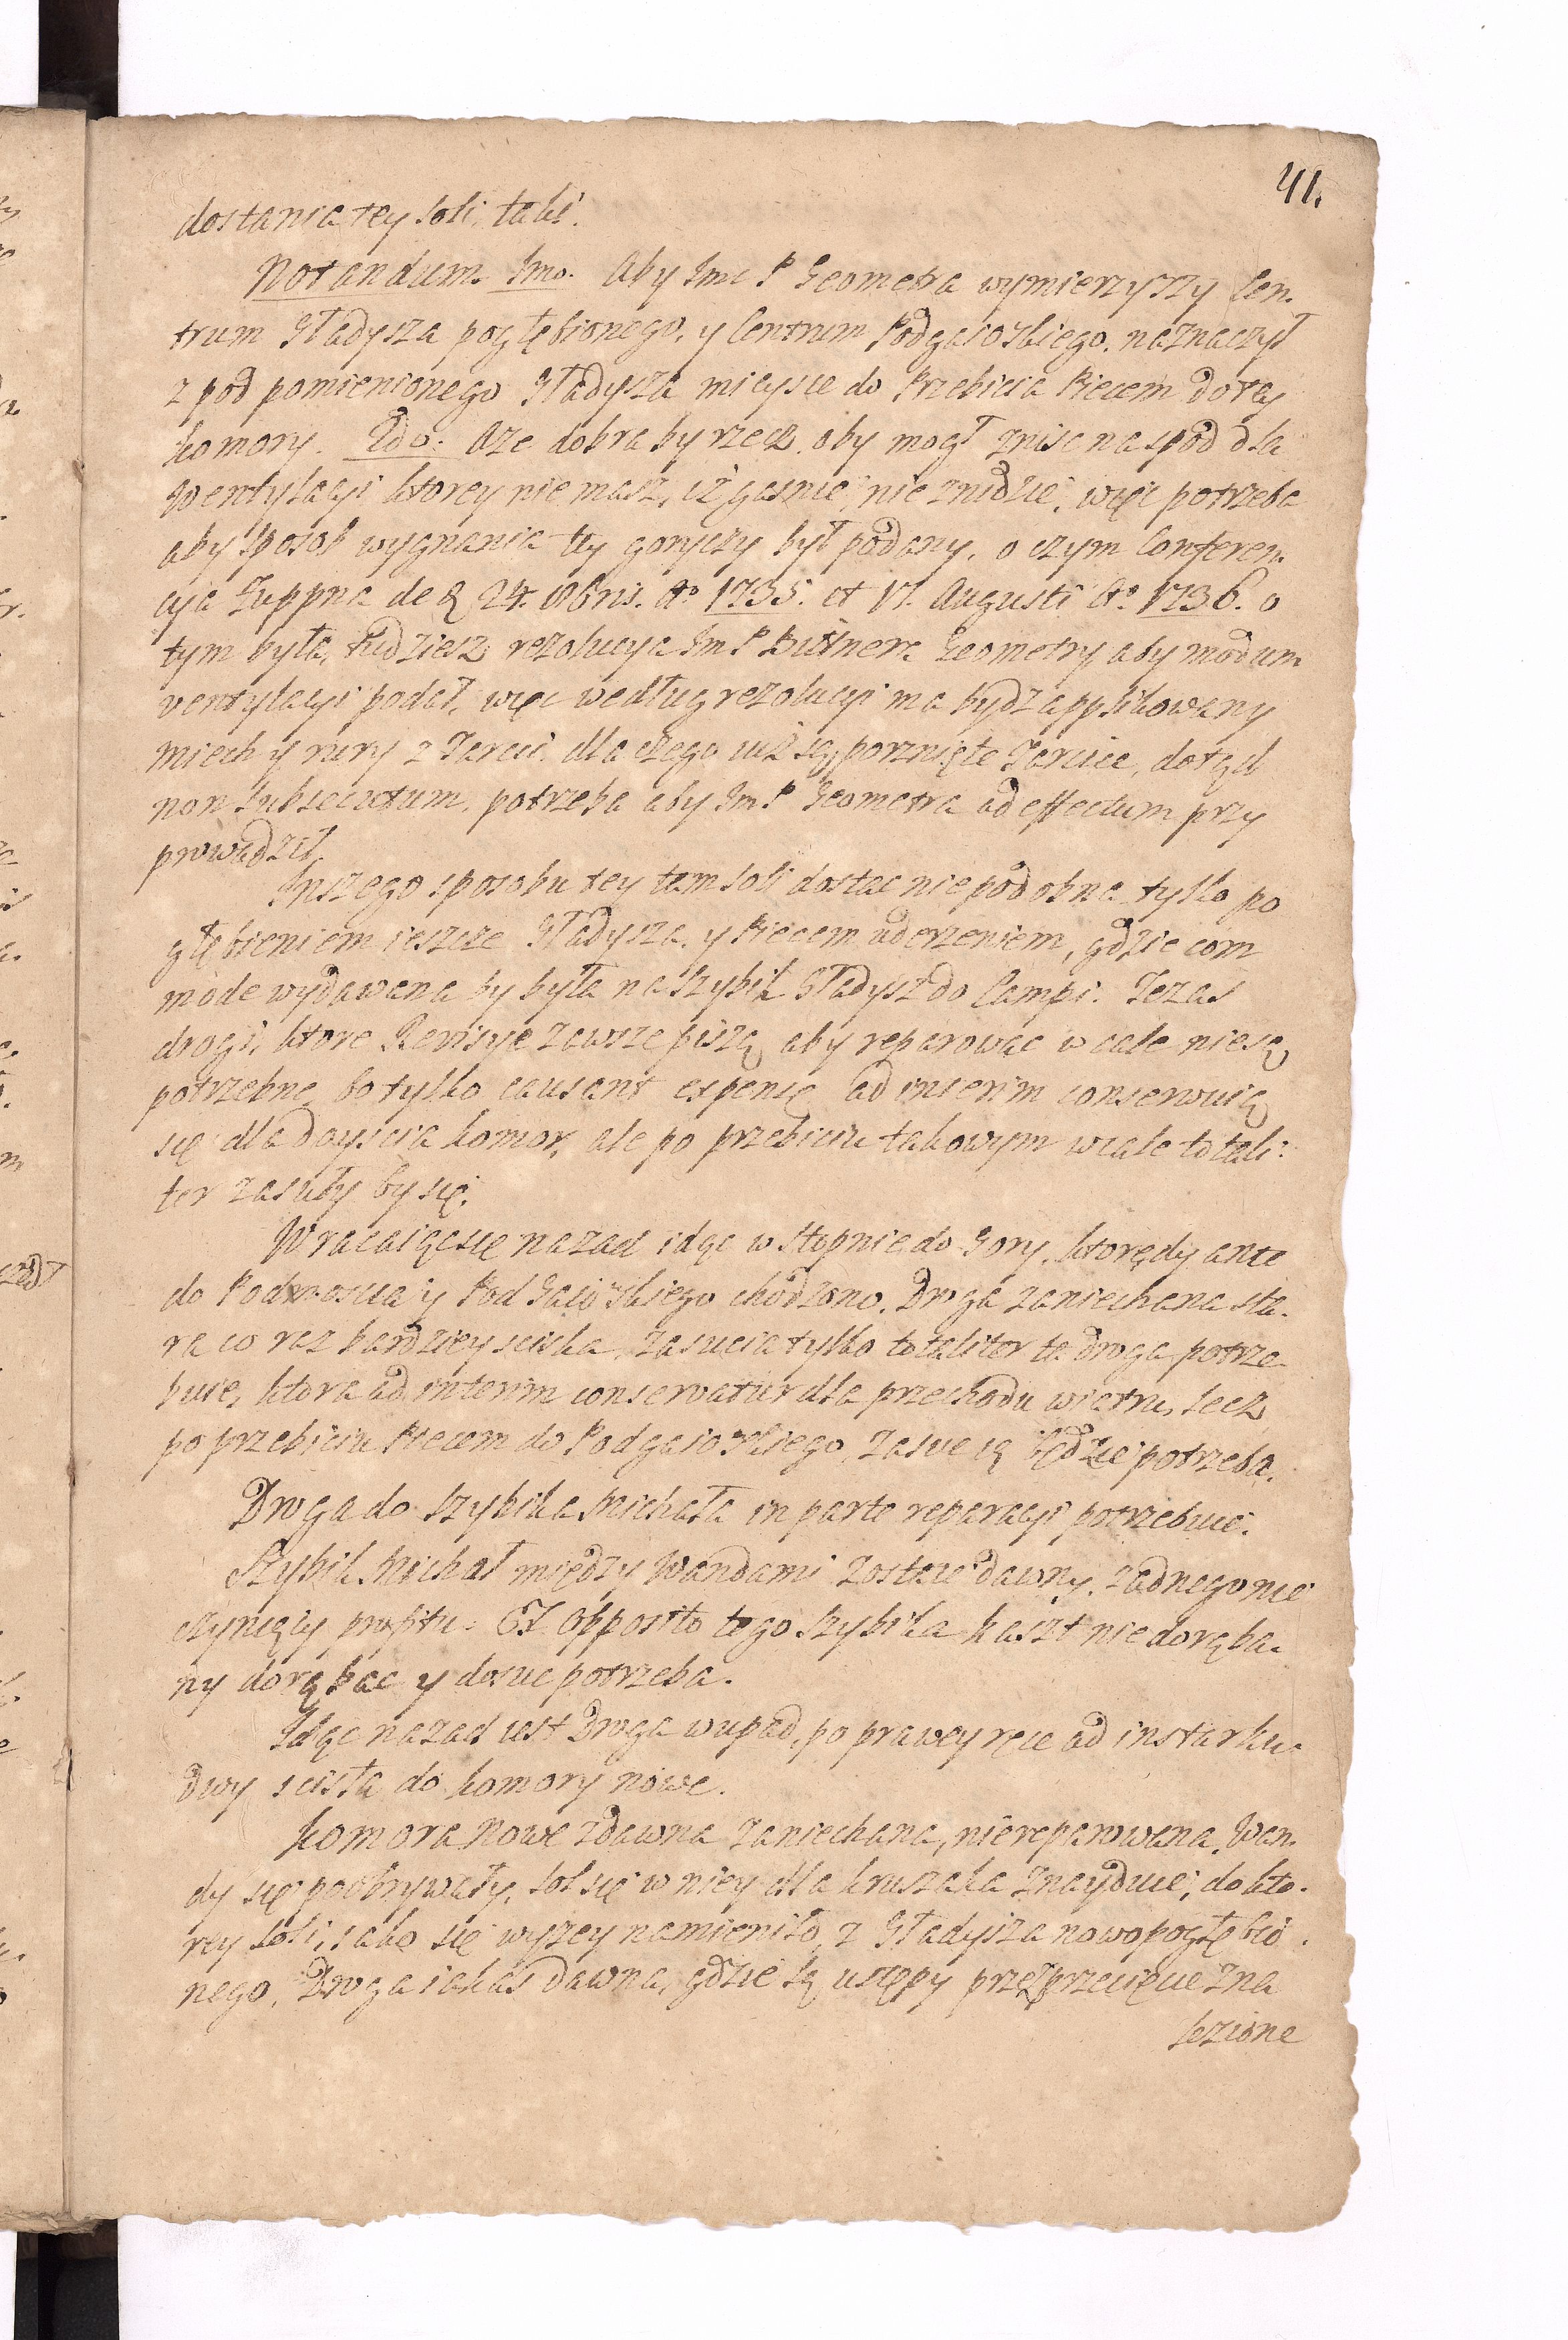 41.
dostania tey soli taki.
Notandum. Imo. Aby Imć P Geometra wymierzyszy Cen.
trum Gładysza pogłębionego, y Centrum Podgaiowskiego, naznaczył
z pod pomienionego Gładysza mieysce do Przebicia Piecem do tey
komory. 2do. Aże dobra by rzecz, aby mogł zniść na spod dla
Wentylacyi ktorey nie masz, iż gaśnie, nie znidzie, więc potrzeba
aby sposob wygnania tey goryczy był podany, o czym Conferen.
cya Zuppna de d 24. 8bris. Ao 1735. et 17. Augusti Ao 1736. o
tym była, tudziesz rezolucya Im P Buttnera Geometry aby modum
ventylacyi podał, więc według rezolucyi ma bydz applikowany
miech y rury z Tarcic. dla czego iuż są porznięte Tarcice, dotąd
non subsecutum, potrzeba aby Im P Geometra ad effectum przy
prowadził,
Inszego sposobu tey tam soli dostac nie podobna tylko po
głębieniem ieszcze Gładysza, y Piecem uderzeniem, gdzie com
mode wydawana by była na Szybik Gładysz do Campi. Te zas
drogi, ktore Rewisye zawsze piszą aby reparowac w cale nie są
potrzebne, bo tylko causant expensę, ad interim conserwuią
się dla doyscia komor, ale po przebiciu takowym wcale totali:
ter zasuły by się.
Wracaiąc się nazad idąc w Stopnie do Gory, ktorędy ante
do Podmoscia y Pod Gaiowskiego chodzono. Droga zaniechana sta.
ra co raz bardziey sciska, zasucia tylko totaliter ta droga potrze
buie, ktora ad interim conservatur dla przechodu wiatru, lecz
po przebiciu Piecem do Podgaiowskiego, zasuć ią będzie potrzeba.
Droga do Szybika Michała in parte reparacyi potrzebuie.
Szybik Michał między Wandami zostaie dawny, żadnego nie
czyniący profitu. Ex Opposito tego Szybika kaszt niedorąba.
ny dorąbac y dosuc potrzeba.
Idąc nazad iest Droga wupad, po prawey ręce ad instar ku.
dwy scisła do komory nowe.
Komora Nowe zdawna zaniechana, niereparowana, Wan.
dy się poobrywały, sol się w niey dla kruszaka znayduie, do kto.
rey soli, iako się wyzey namieniło, z Gładysza nowo pogłębio.
nego, Droga iakas dawna, gdzie są ustępy przez przecięcie zna
lezione